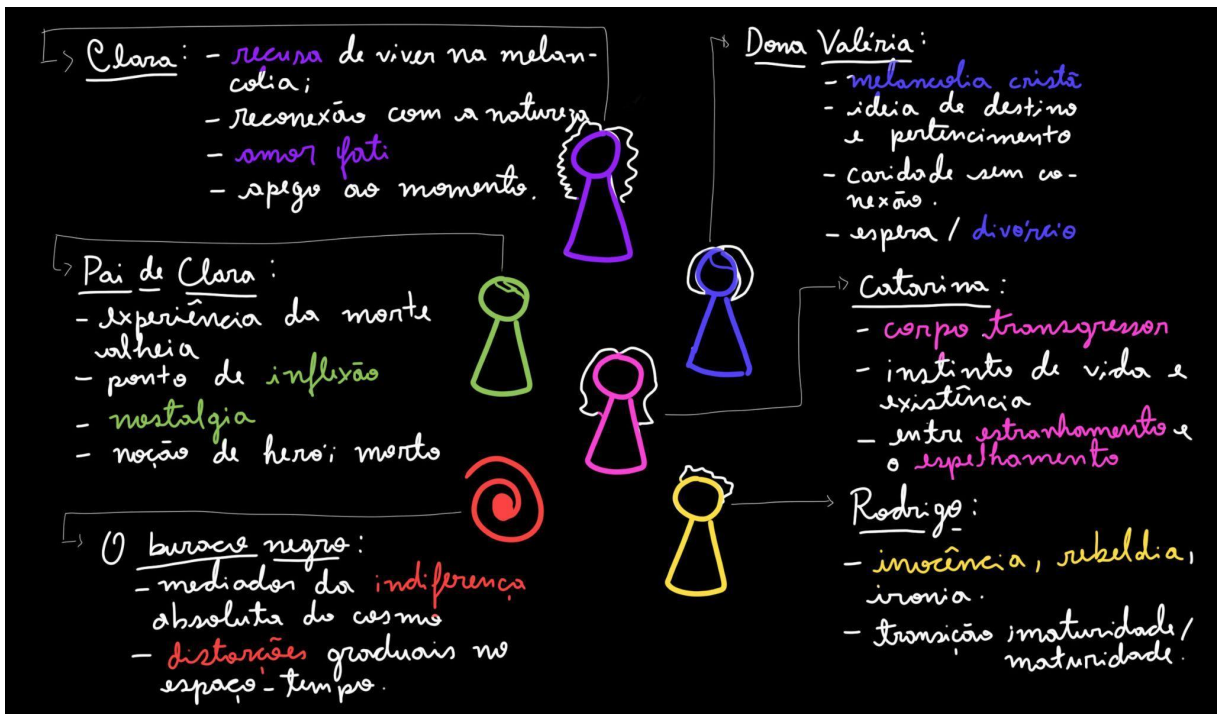 Clara: - recusa de viver na melan-
colia;
- reconexão com a natureza
- amor fati
- apego ao momento.
Pai de Clara:
- experiência da morte
alheia
- ponto de inflexão
- nostalgia
- noção de herói morto
O buraco negro:
- mediador da indiferença
absoluta do cosmo
- distorções graduais no
espaço-tempo.
Dona Valéria:
- melancolia cristã
- ideia de destino
e pertencimento
- caridade sem co-
nexão.
- espera / divórcio
Catarina:
- corpo transgressor
- instinto de vida e
existência
- entre estranhamento e
o espelhamento
Rodrigo:
- inocência, rebeldia,
ironia.
- transição imaturidade/
maturidade.